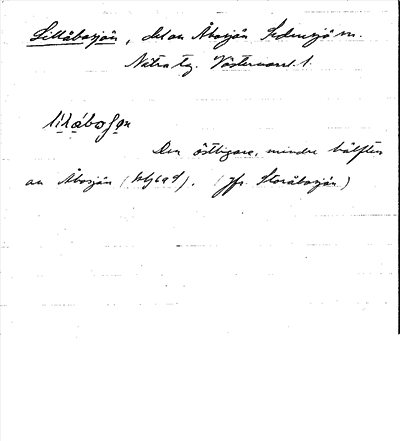 Lillåbosjön, del av Åbosjön Sidensjö sn.
Nätra tg. Västernorrl. l.
Den östligare, mindre hälften
av Åbosjön (jfr. Storåbosjön)